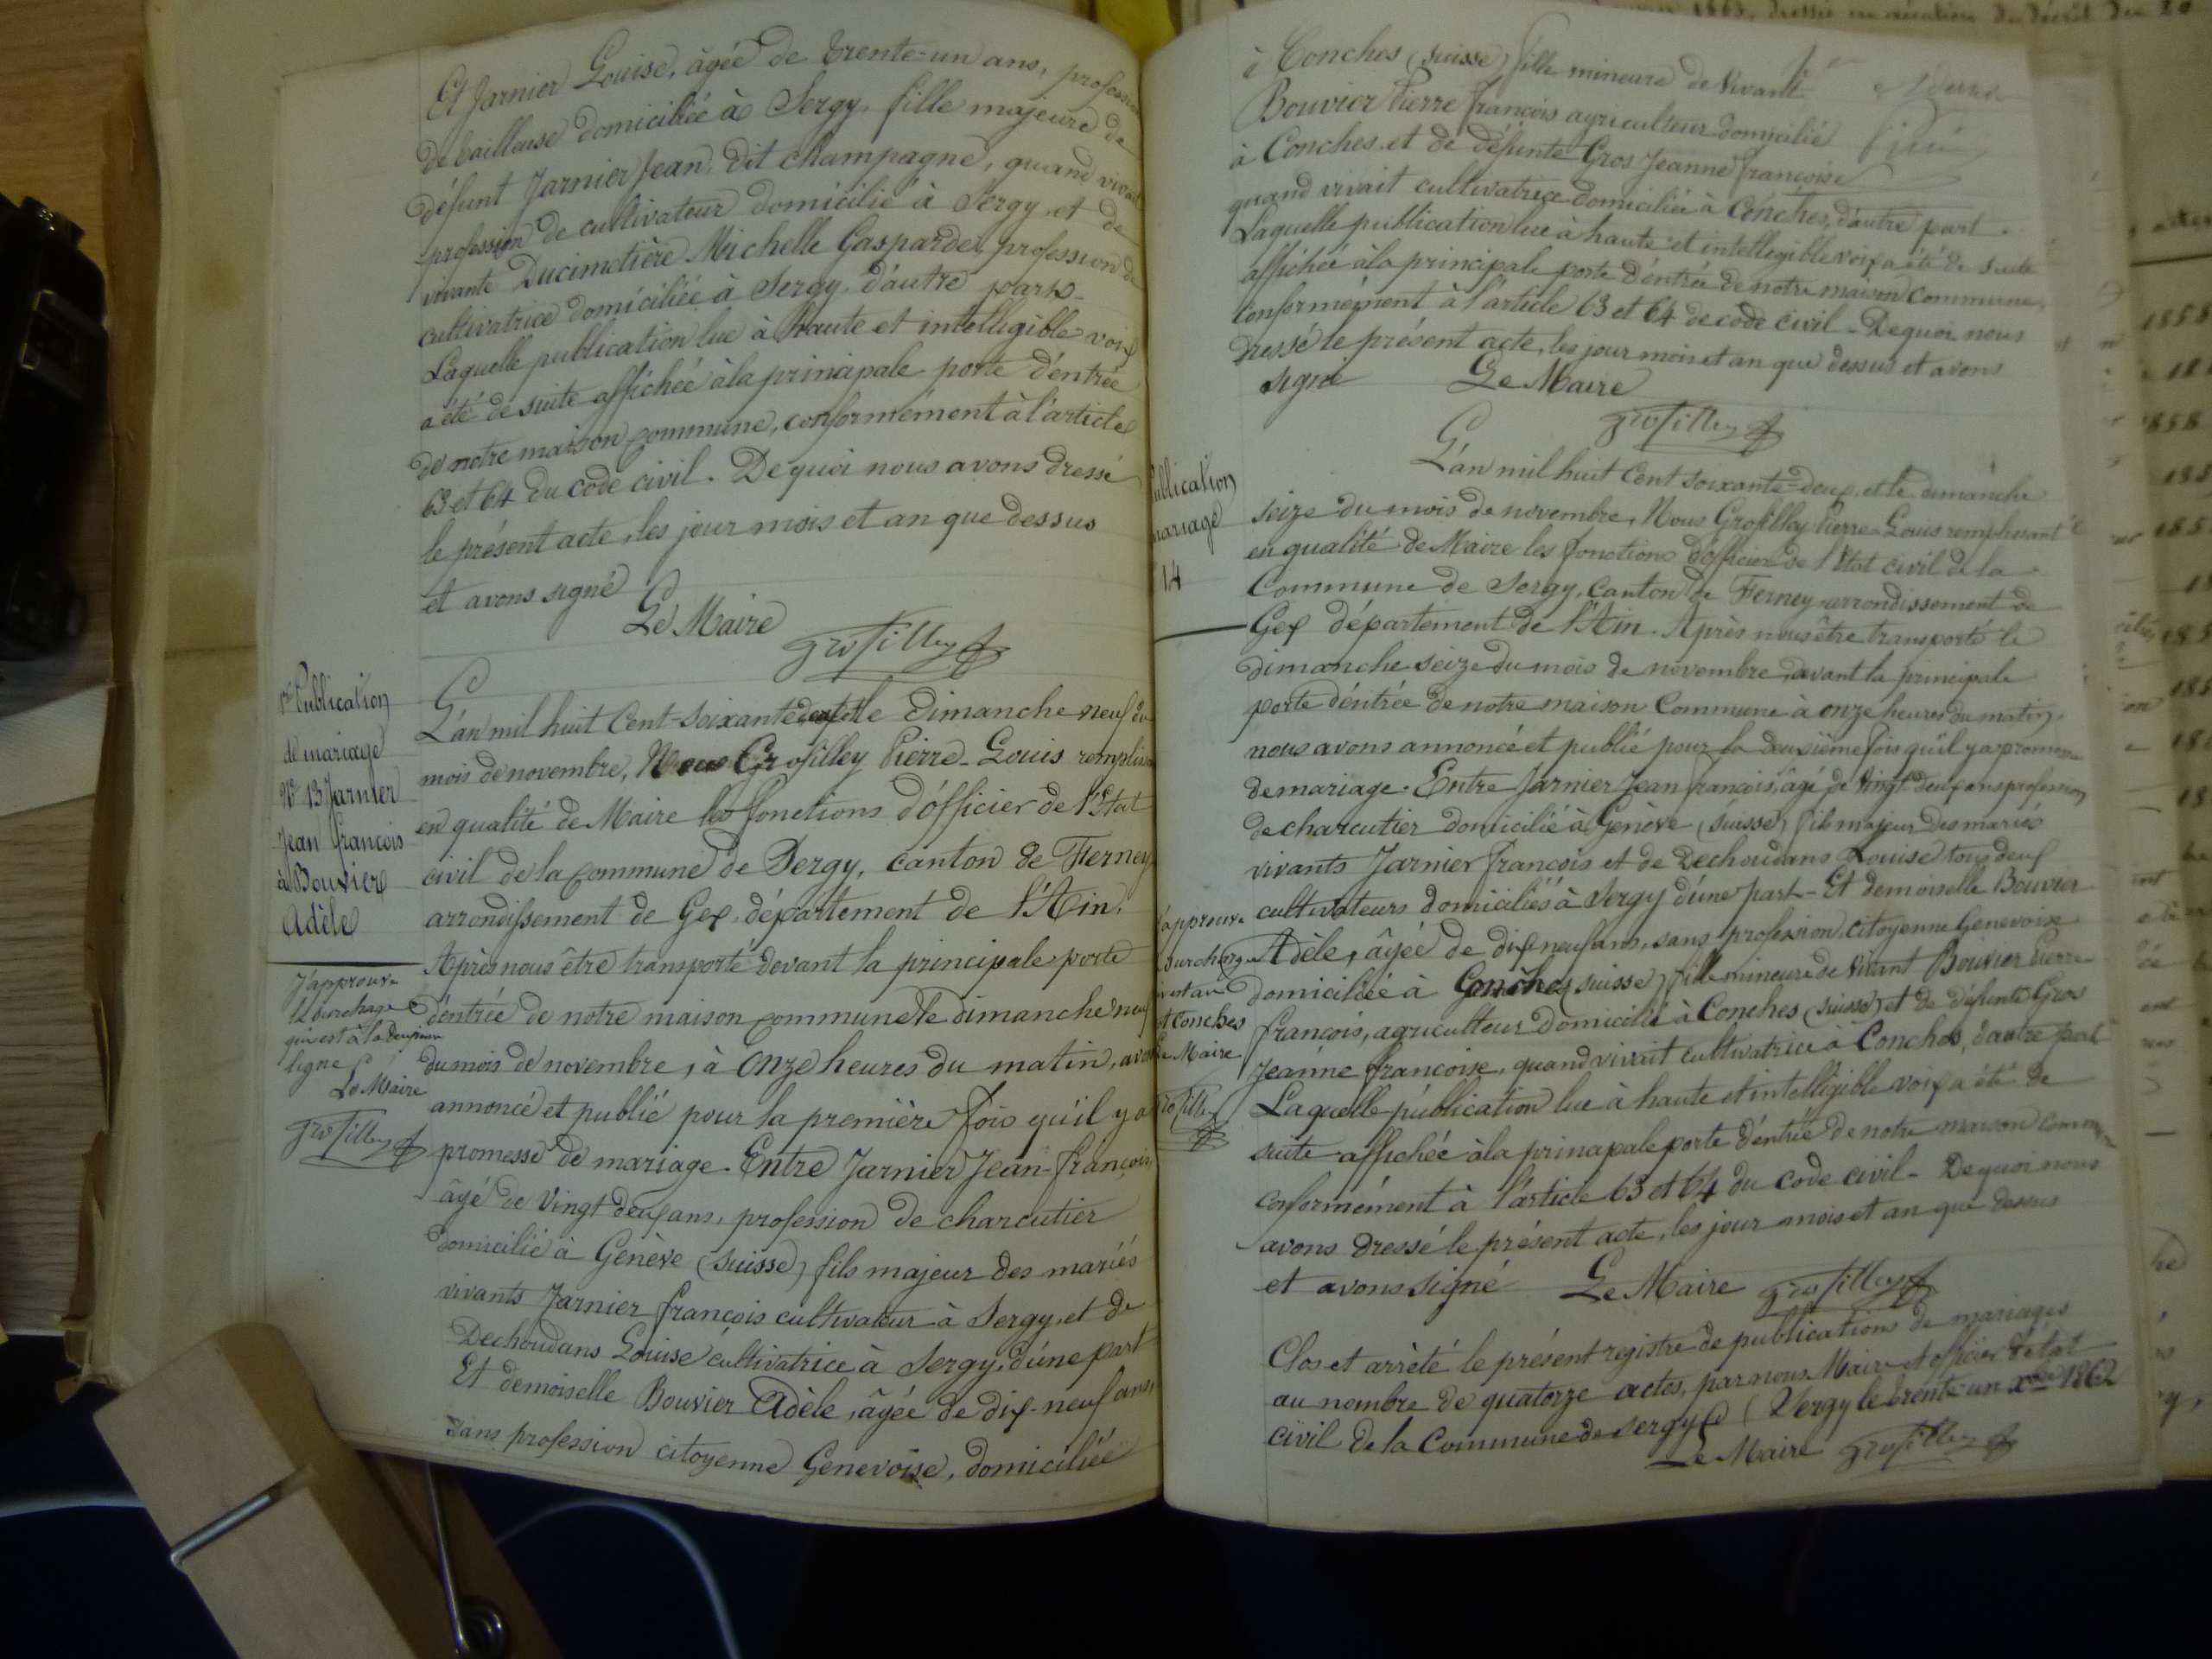 Et Jarnier Louise, âgée de trente-un ans, profession
de tailleuse domiciliée à Sergy, fille majeure de
défunt Jarnier Jean, dit champagne, quand vivait
profession de cultivateur domicilié à Sergy, et de
vivante Ducimetière Michelle Gasparde, profession de
cultivatrice domiciliée à Sergy, d'autre part.
Laquelle publication lue à haute et intelligible voix
a été de suite affichée à la principale porte d'éntrée
de notre maison commune, conformément à l'article
63 et 64 du code civil. De quoi nous avons dressé
le présent acte, les jour mois et an que dessus
et avons signé
Le Maire
Grosfilley
1re Publication
de mariage
No 13 Jarnier
Jean francois
à Bouvier
Adèle
J'approuve
la surcharge
qui est à la deuxième
ligne
Le Maire
Grosfilley
L'an mil huit Cent-soixante deux et le dimanche neuf du
mois de novembre, Nous Grosfilley Pierre-Louis remplissant
en qualité de Maire les fonctions d'officier de l'Etat
civil de la commune de Sergy, canton de Ferney
arrondissement de Gex, département de l'Ain.
Après nous être transporté devant la principale porte
d'éntrée de notre maison commune le dimanche neuf
du mois de novembre, à Onze heures du matin, avons
annoncé et publié pour la première fois qu'il y a
promesse de mariage. Entre Jarnier Jean-francois,
âgé de vingt deux ans, profession de charcutier
domicilié à Genève (suisse) fils majeur des mariés
vivants Jarnier françois cultivateur à Sergy, et de
Dechoudans Louise cultivatrice à Sergy, d'une part
Et demoiselle Bouvier Adèle, âgée de dix-neuf ans,
sans profession citoyenne Genevoise, domiciliée
à Conches (suisse) fille mineure de vivant
Bouvier Pierre françois agriculteur domicilié
à Conches, et de défunte Gros Jeanne françoise
quand vivait cultivatrice domiciliée à Conches, d'autre part.
Laquelle publication lue à haute et intellegible voix a été de suite
affichée à la principale porte d'éntrée de notre maison commune,
conformément à l'article 63 et 64 de code civil. De quoi nous
dressé le présent acte, les jour mois et an que dessus et avons
signé Le Maire
Grosfilley
Publication
mariage
14
L'an mil huit Cent soixante-deux, et le dimanche
seize du mois de novembre, Nous Grosfilley Pierre-Louis remplissant
en qualité de Maire les fonctions d'officier de l'Etat civil de la
Commune de Sergy, Canton de Ferney arrondissement de
Gex département de l'Ain. Après nous être transporté le
dimanche seize du mois de novembre, devant la principale
porte d'éntrée de notre maison Commune à onze heures du matin,
nous avons annoncé et publié pour la deuxième fois qu'il y a promesse
de mariage. Entre Jarnier Jean françois, âgé de vingt deux ans profession
de charcutier domicilié à Genève (suisse) fils majeur des mariés
vivants Jarnier françois et de Dechoudans Louise tous deux
cultivateurs domiciliés à Sergy d'une part. Et demoiselle Bouvier
Adèle, âgée de dix neuf ans, sans profession, citoyenne Genevoise
domiciliée à Conches (suisse) fille mineure de vivant Bouvier Pierre
francois, agriculteur domicilié à Conches (suisse) et de défunte Gros
Jeanne francoise, quand vivait cultivatrice à Conches, d'autre part
Laquelle publication lue à haute et intelligible voix a été de
suite affichée à la principale porte d'éntrée de notre maison commune
conformément à l'article 63 et 64 du code civil. De quoi nous
avons dressé le présent acte, les jour mois et an que dessus
et avons signé Le Maire Grosfilley
approuve
surcharge
et Conches
Le Maire
Grosfilley
Clos et arrêté le présent registre de publications de mariages
au nombre de quatorze actes, par nous Maire et officier d'état
civil de la Commune de Sergy (Sergy le trente-un Xbre 1862
Le Maire Grosfilley
1858
1858